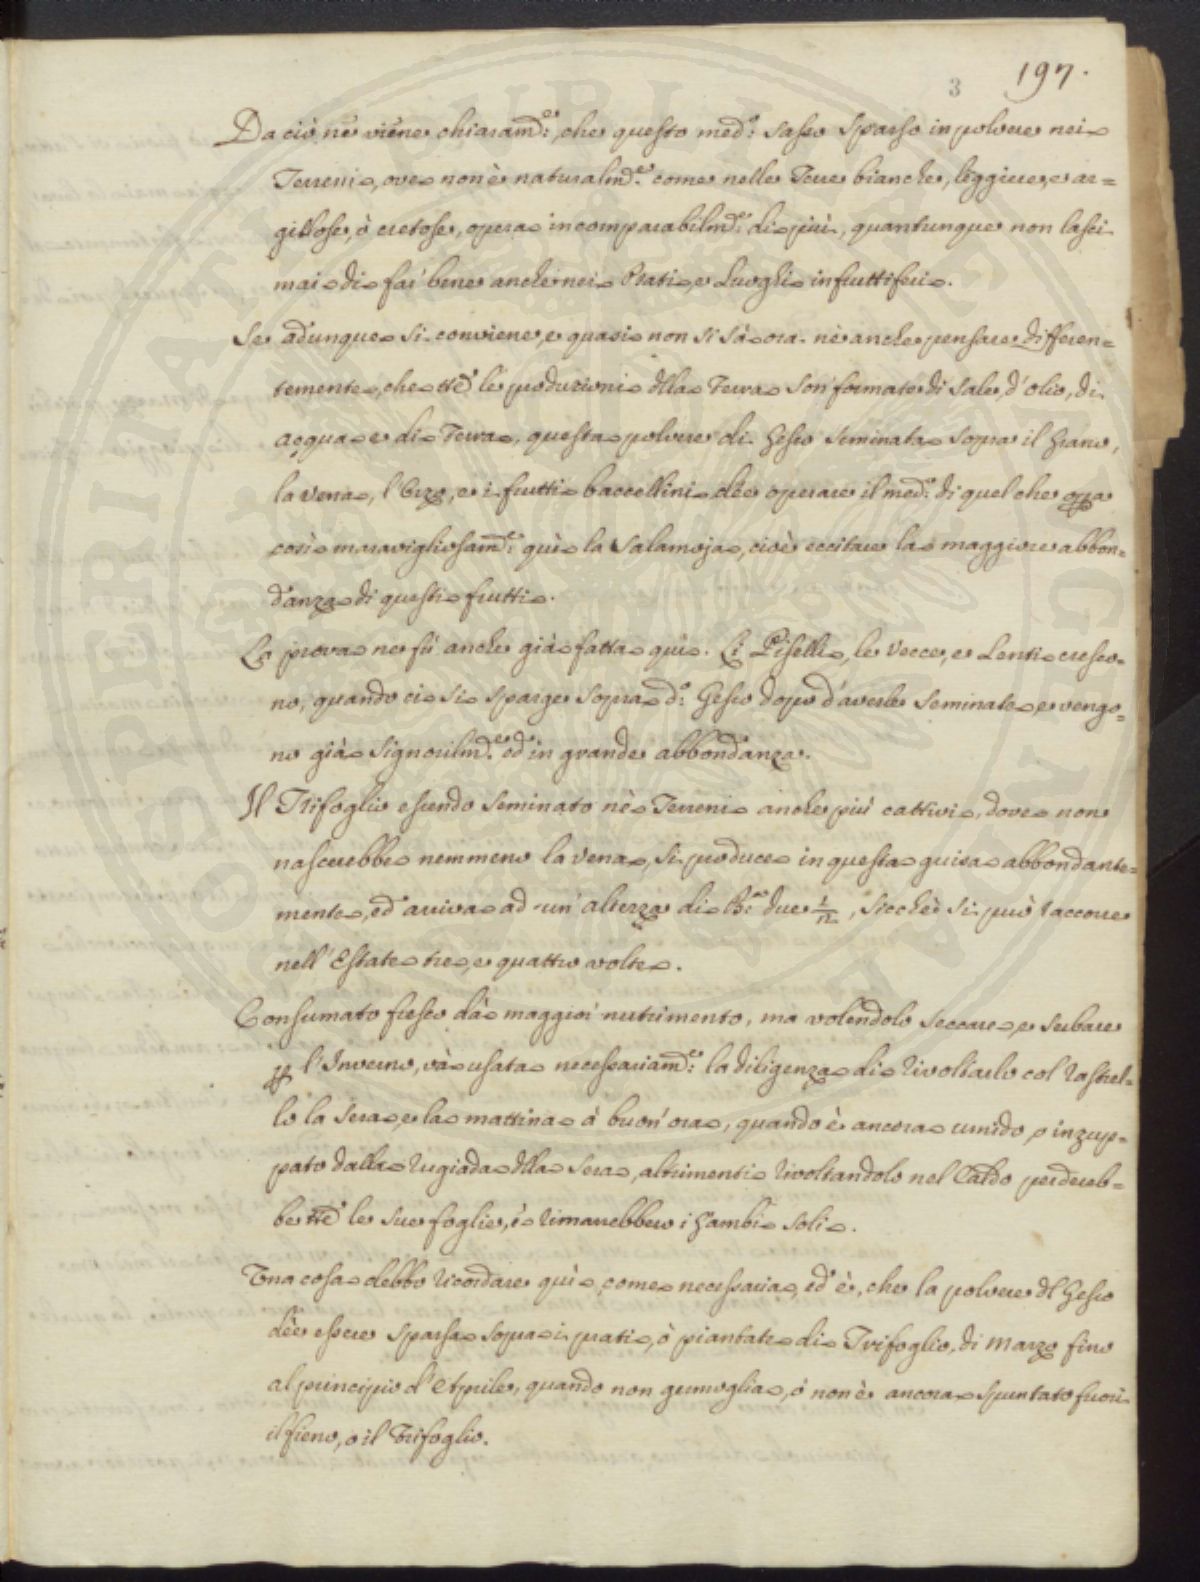 3 197.
Da ciò ne viene chiaramd:e, che questo med:o sasso sparso in polvere nei
Terreni, ove non è naturalmd:e come nelle Terre bianche, leggiere, e ar=
gillose, ò cretose, opera incomparabilmd:e di più, quantunque non lasci
mai di far bene anche nei Prati, e Luoghi infruttiferi.
Se adunque si conviene, e quasi non si sà ora nè anche pensare differen=
temente, che tte le produzioni dlla Terra son formate di sale, d'olio, di
acqua e di Terra, questa polvere di Gesso seminata sopra il Grano,
la Vena, l'Orzo, e i frutti baccellini dèe operare il med:o di quel che opa
così maravigliosamd:e quì la Salamoja, cioè eccitare la maggiore abbon=
danza di questi frutti.
La prova ne fù anche già fatta quì. Li Piselli, le Vecce, e Lenti cresco=
no, quando ci si sparge sopra d:o Gesso dopo d'averle seminate, e vengo=
no già signorilmd:e ed in grande abbondanza.
Il Trifoglio essendo seminato nè Terreni anche più cattivi, dove non
nascerebbe nemmeno la Vena, si produce in questa guisa abbondante=
mente, ed arriva ad un'altezza di B:a due 1/12, sicchè si può raccorre
nell'Estate tre, e quattro volte.
Consumato fresco dà maggior nutrimento, ma volendolo seccare, e serbare
p l'Inverno, và usata necessariamd:e la diligenza di rivoltarlo col rastrel=
lo la sera, e la mattina à buon'ora, quando è ancora umido, o inzup=
pato dalla rugiada dlla sera, altrimenti rivoltandolo nel Caldo perdereb=
be tte le sue foglie, è rimarrebbero i Gambi soli.
Una cosa debbo ricordare quì, come necessaria, ed è, che la polvere dl Gesso
dèe essere sparsa sopra i prati, ò piantate di Trifoglio, di Marzo fino
al principio d'Aprile, quando non germoglia, ò non è ancora spuntato fuori
il fieno, o il Trifoglio.
SOSPERITATI PUBLICAE AUGENDAE